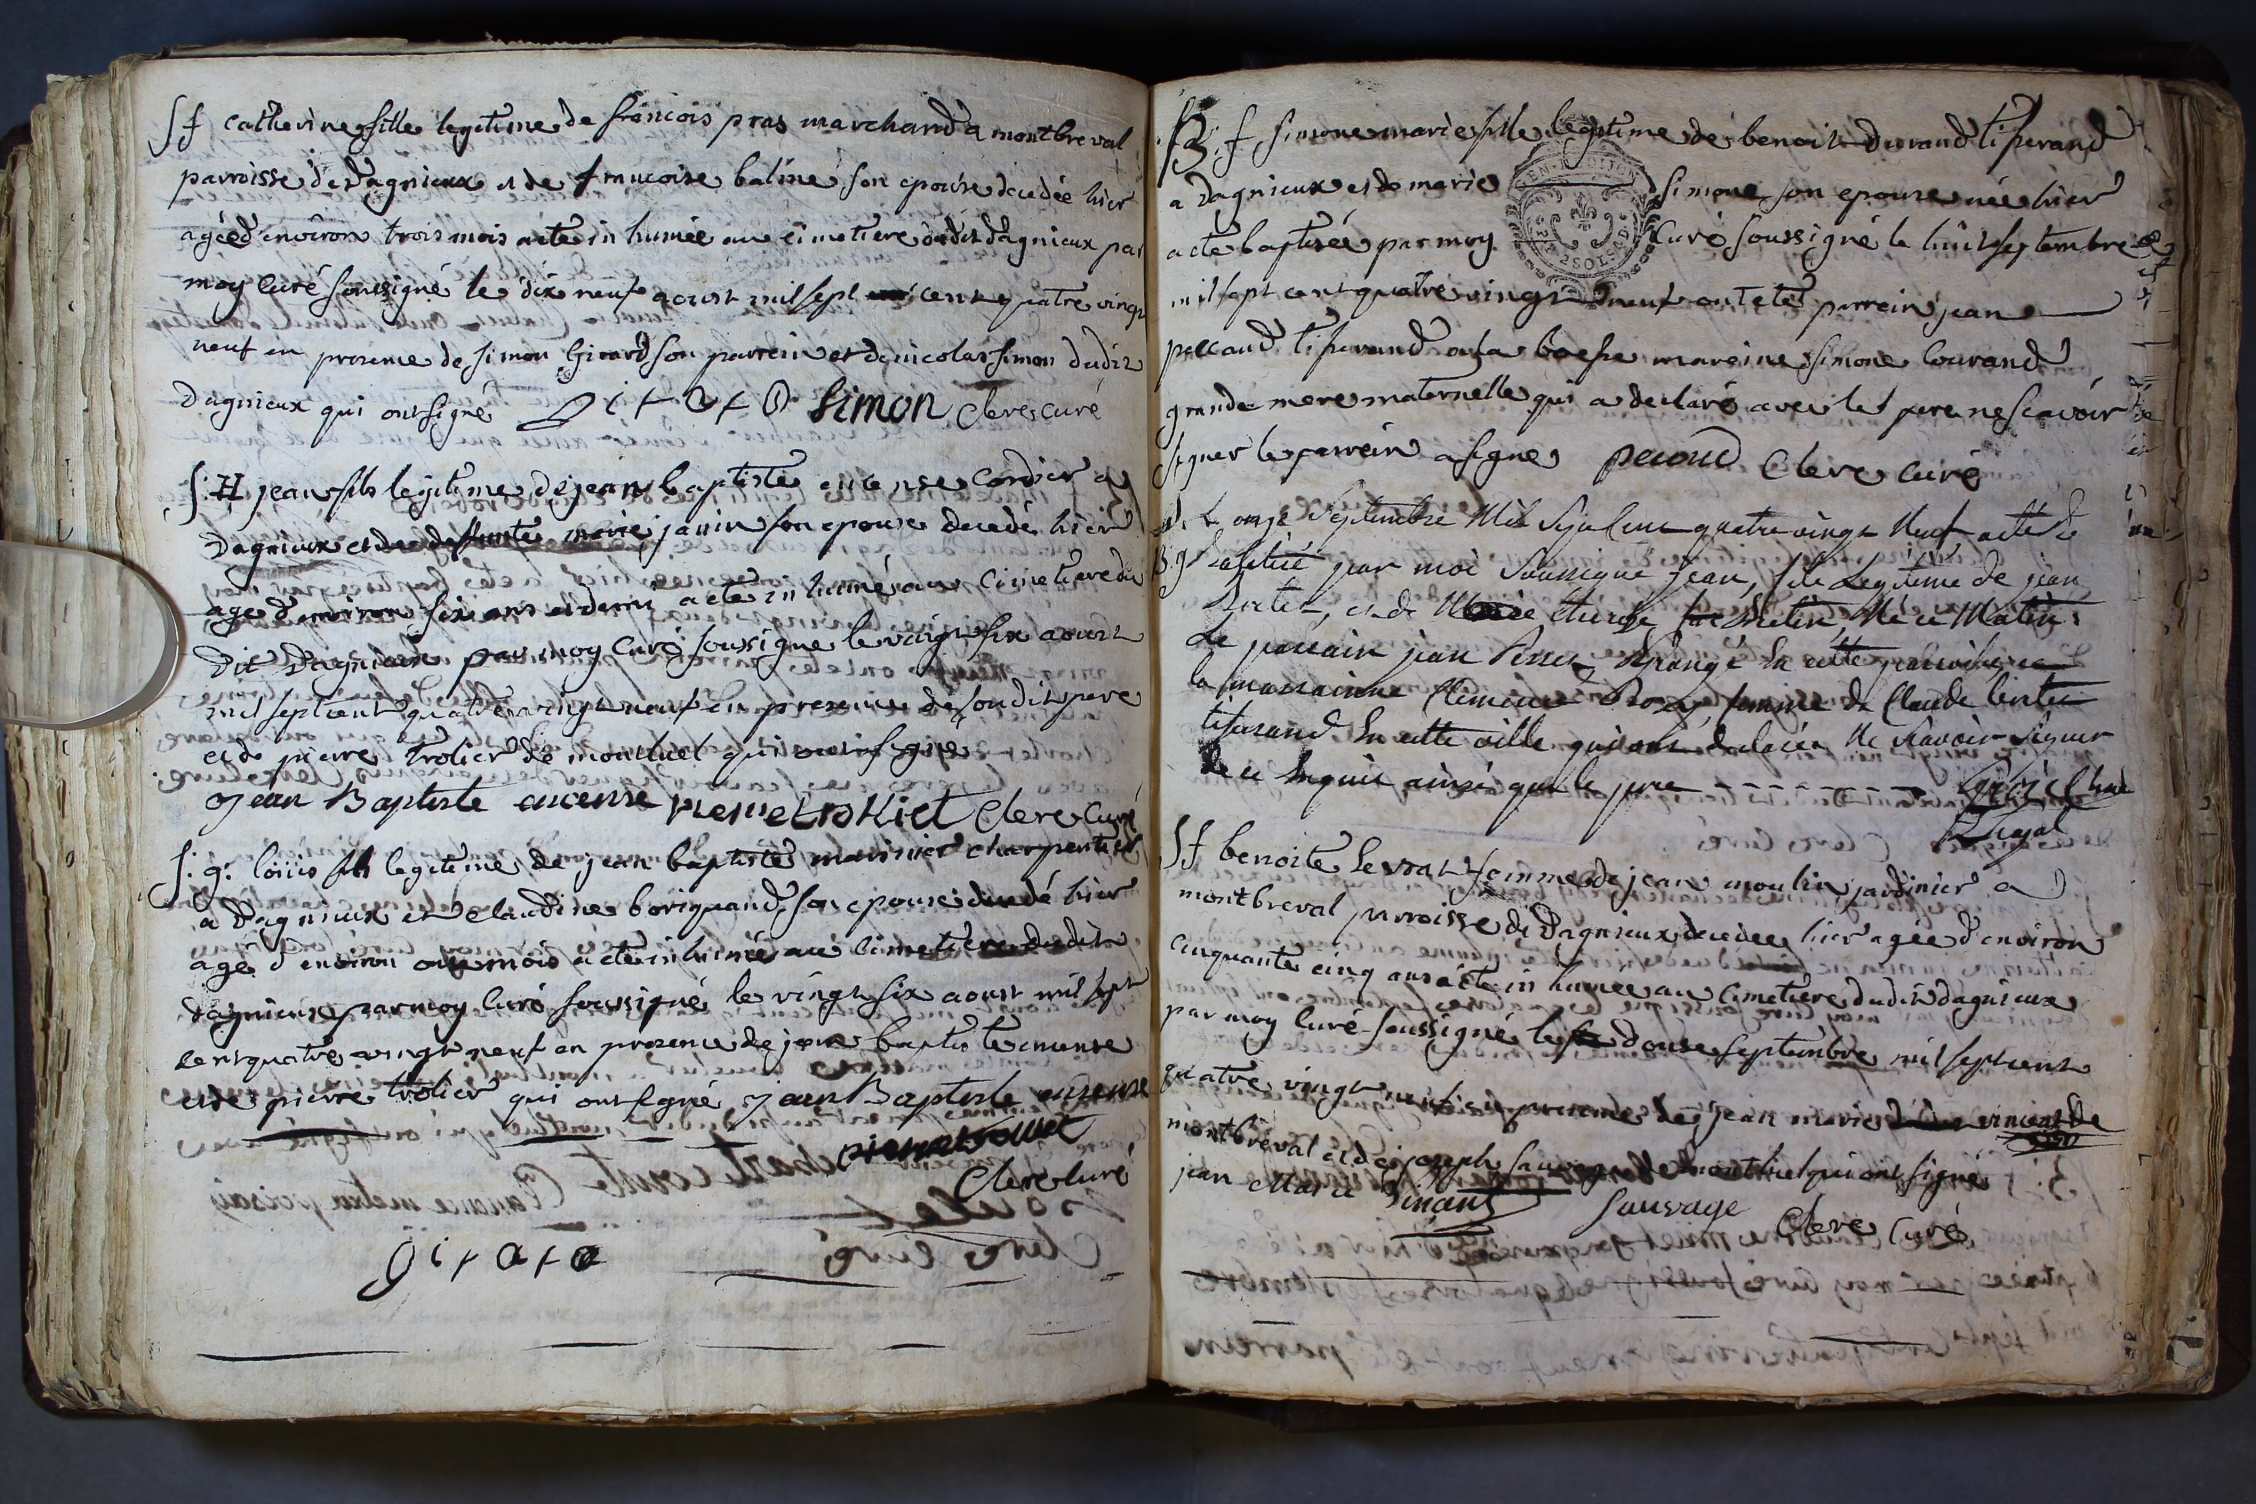 S f catherine fille legitime de francois pras marchand a montbreval
parroisse de Dagnieux et de francoise baline son epouse decedée hier
agée d'environ trois mois a ete inhumée au cimetiere dudit dagnieux par
moy curé soussigné le dix neuf aoust mil sept cent quatre vingt
neuf en presence de simon girard son parrein et de nicolas simon dudit
Dagnieux qui ont signé girard simon Clere curé
S. jean fils legitime de jean baptiste encense cordier a
Dagnieux et de deffunte marie janin son epouse decedé hier
age d'environ six ans et demi a ete inhumé au cimetiere du
dit Dagnieux par moy curé soussigné le vaingt six aoust
mil sept cent quatre vingt neuf en presence de son dit pere
et de pierre trolier de montluel qui ont signé
jean Baptiste encense pierre trolliet Clere Curé
S. g. loüis fils legitime de jean baptiste marinier charpentier
a Dagnieux et claudine boriquand son epouse decedé hier
age d'environ onze mois a ete inhumé au cimetiere dudit
dagnieux par moy curé soussigné le vingt six aoust mil sept
cent quatre vingt neuf en presence de jean baptiste encense
et de pierre trolier qui ont signé jean Baptiste encense
pierre trolliet
Clere curé
girard
B. f simone marie fille legitime de benoit durand tisserand
a Dagnieux et de marie simone son epouse née hier
a ete baptisée par moy Curé soussigné le huit septembre
mil sept cent quatre vingt neuf ont ete parrein jean
peccaud tisserand a la boesse mareine simone courand
grande mere maternelle qui a declaré avec le pere ne scavoir
signer le parrein a signé Clere curé
L onze Septembre Mil Sept Cent quatre vingt Neuf a été
B. g Batisé par moi Soussigné Jean, fils Legitime de jean
Berter, et de Né ce Matin
Le parrain jean de cette parroisse
la marrainne Clemence femme de Claude
tisserand En cette ville qui ont declarés Ne Scavoir Signer
de ce Enquis ainsi que le pere
S f benoite levrat femme de jean moulin jardinier a
montbreval parroisse de Dagnieux decedée hier agée d'environ
cinquante cinq ans a ete inhumée au cimetiere dudit dagnieux
par moy curé soussigné le douse septembre mil sept cent
quatre vingt neuf en presence de jean marie vincent de
montbreval et de joseph sauvage de montluel qui ont signé
jean Marie Vinant Sauvage Clere Curé